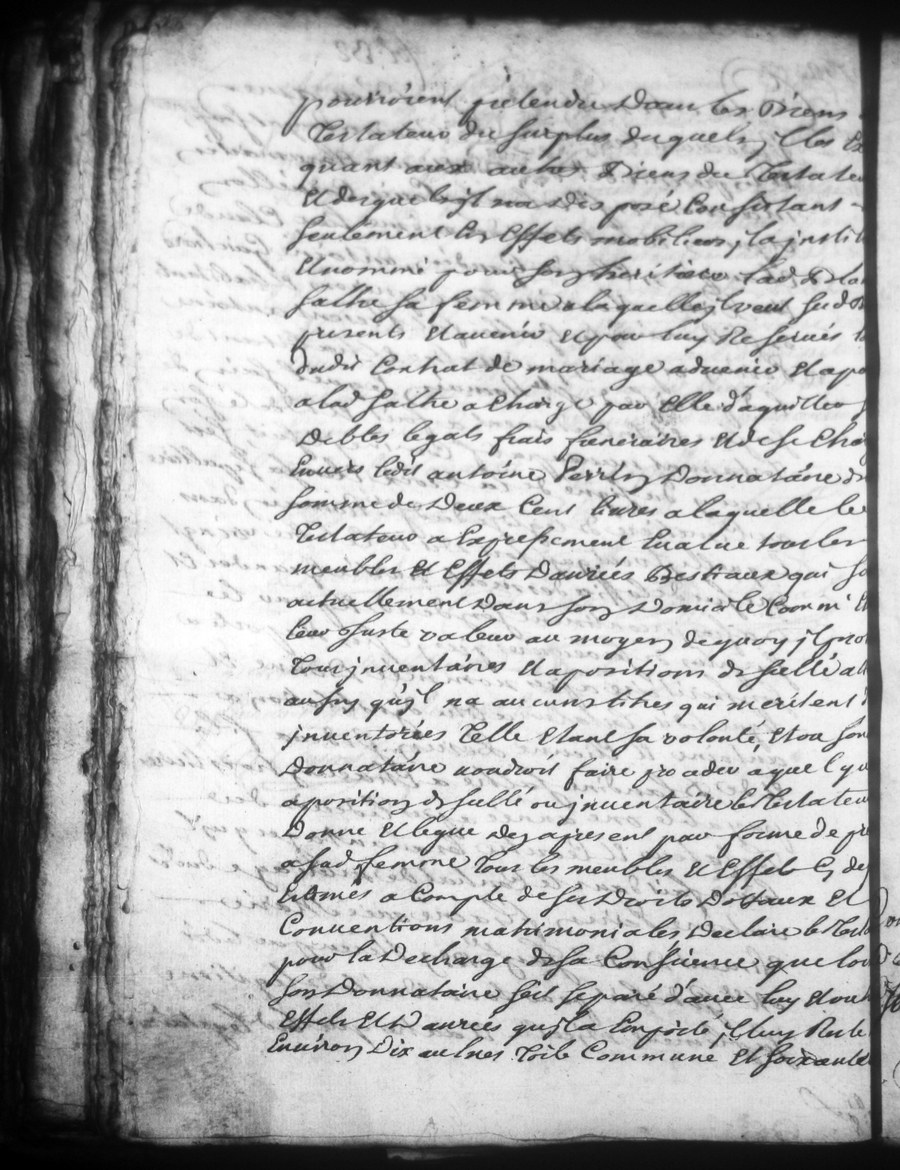 pourroient pretendre dans les Biens
Testateur du surplus duquel il les
quant aux autres Biens du Testateu
Et desquels il na disposé Consistant
seulement En Effets mobiliers, il a instit
Et nommé pour son heritiere lad
salhe sa femme a laquelle il veut
presents Et avenir Et pour luy Reservés
dudit Contrat de mariage advenir Et apa
a lad salhe a Charge par Elle d'aquitter
debtes legats frais funeraires Et de se Cha
Envers ledit antoine Perrin Donnataire d
somme de Deux Cent livres a laquelle le
Testateur a Expressement Evalué tous les
meubles Et Effets Danrées Bestiaux qui so
actuellement Dans son Domicile Comm Et
leur juste valeur au moyen de quoy il pro
tous inventaires Et apositions de sellé
aussy qu'il na aucuns titres qui meritent
inventorées Telle Etant sa volonté, Et ou son
Donnataire voudroit faire proceder a quelqu
aposition de sellé ou inventaire le Testateu
Donne Et legue dez apresent par forme de pr
a sad femme Tous les meubles Et Effets Cy de
Estimés a Compte de ses Droits Dotaux Et
Conventions matrimoniales Declare le Test
pour la Decharge de sa Consience que lo
son Donnataire s'est separé d'avec luy Et
Effets Et Danrées qu'il a Emporté, il luy Reste
Environ Dix aulnes Toile Commune Et soixante